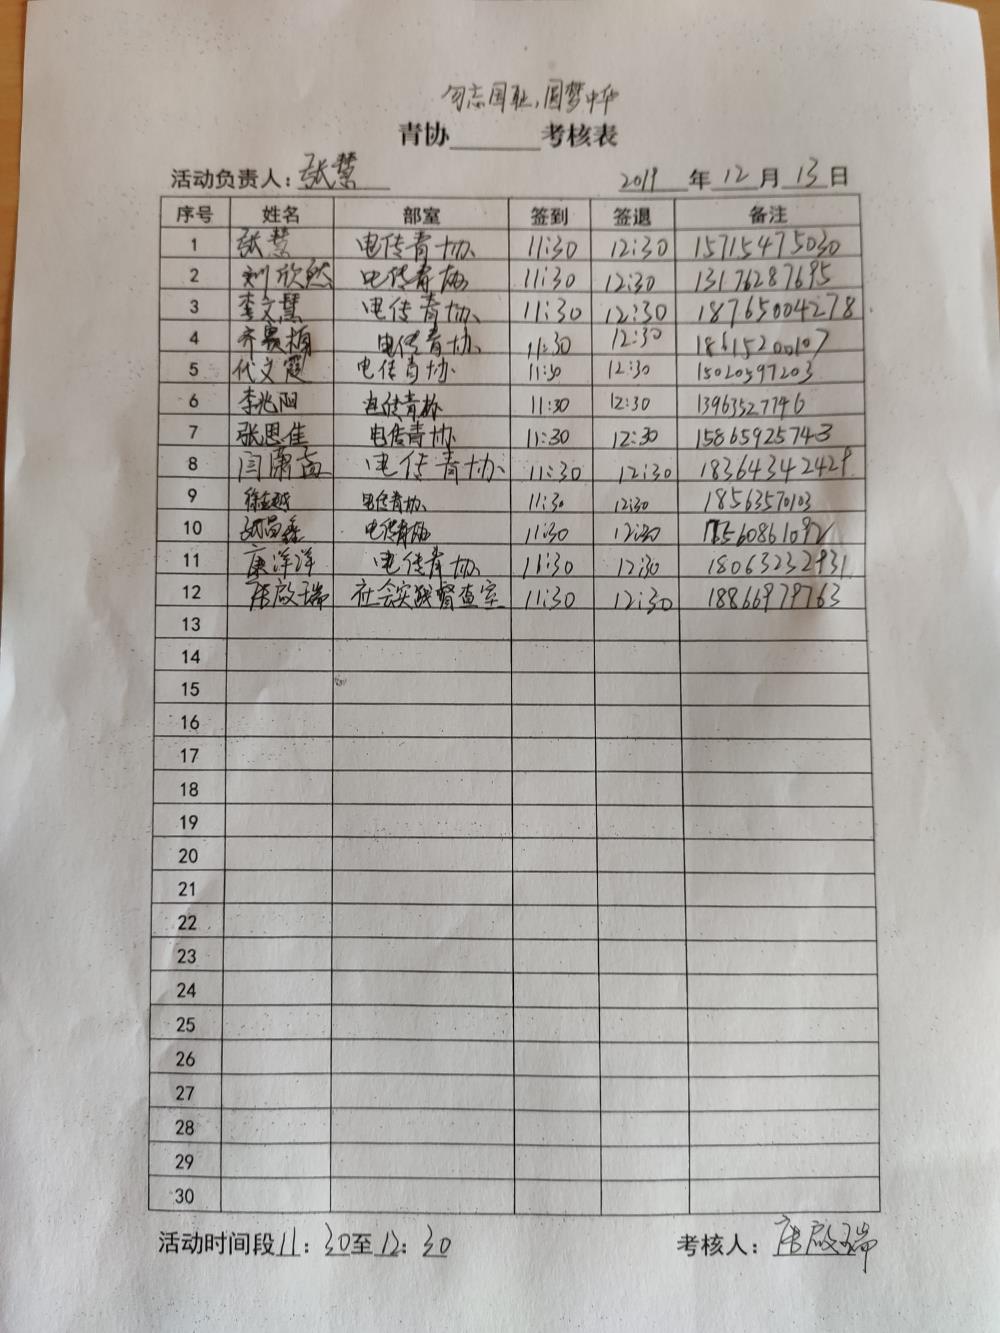 勿忘国耻,圆梦中华
青协______考核表
活动负责人:张慧 2019年12月13日
序号 姓名 部室 签到 签退 备注
1 张慧 电传青协 11:30 12:30 15715475030
2 刘欣然 电传青协 11:30 12:30 13176287695
3 李文慧 电传青协 11:30 12:30 18765004278
4 电传青协 11:30 12:30 18615200107
5 代文霞 电传青协 11:30 12:30 15020597203
6 李兆阳 电传青协 11:30 12:30 13963527746
7 张思佳 电传青协 11:30 12:30 15865925743
8 闫肃孟 电传青协 11:30 12:30 18364342429
9 电传青协 11:30 12:30 18563570103
10 电传青协 11:30 12:30 1560861092
11 康洋洋 电传青协 11:30 12:30 18063232931
12 唐啟瑞 社会实践督查室 11:30 12:30 18866979763
13
14
15
16
17
18
19
20
21
22
23
24
25
26
27
28
29
30
活动时间段11:30至12:30 考核人:唐啟瑞